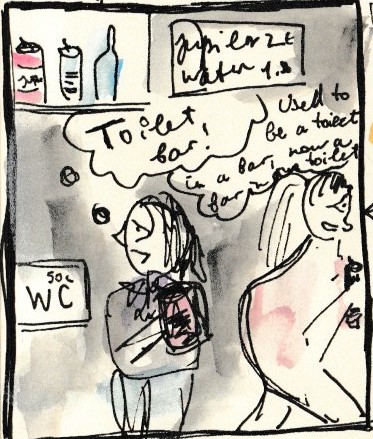 Jupiler 2€
water 1.8
Toilet
bar!
Used to
be a toilet
in a bar, now a
bar in a toilet
50c
WC